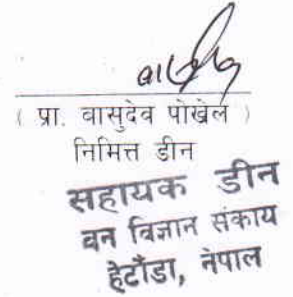 ( प्रा. वासुदेव पोखेल )
निमित्त डीन
सहायक डीन
वन विज्ञान संकाय
हेटौंडा, नेपाल